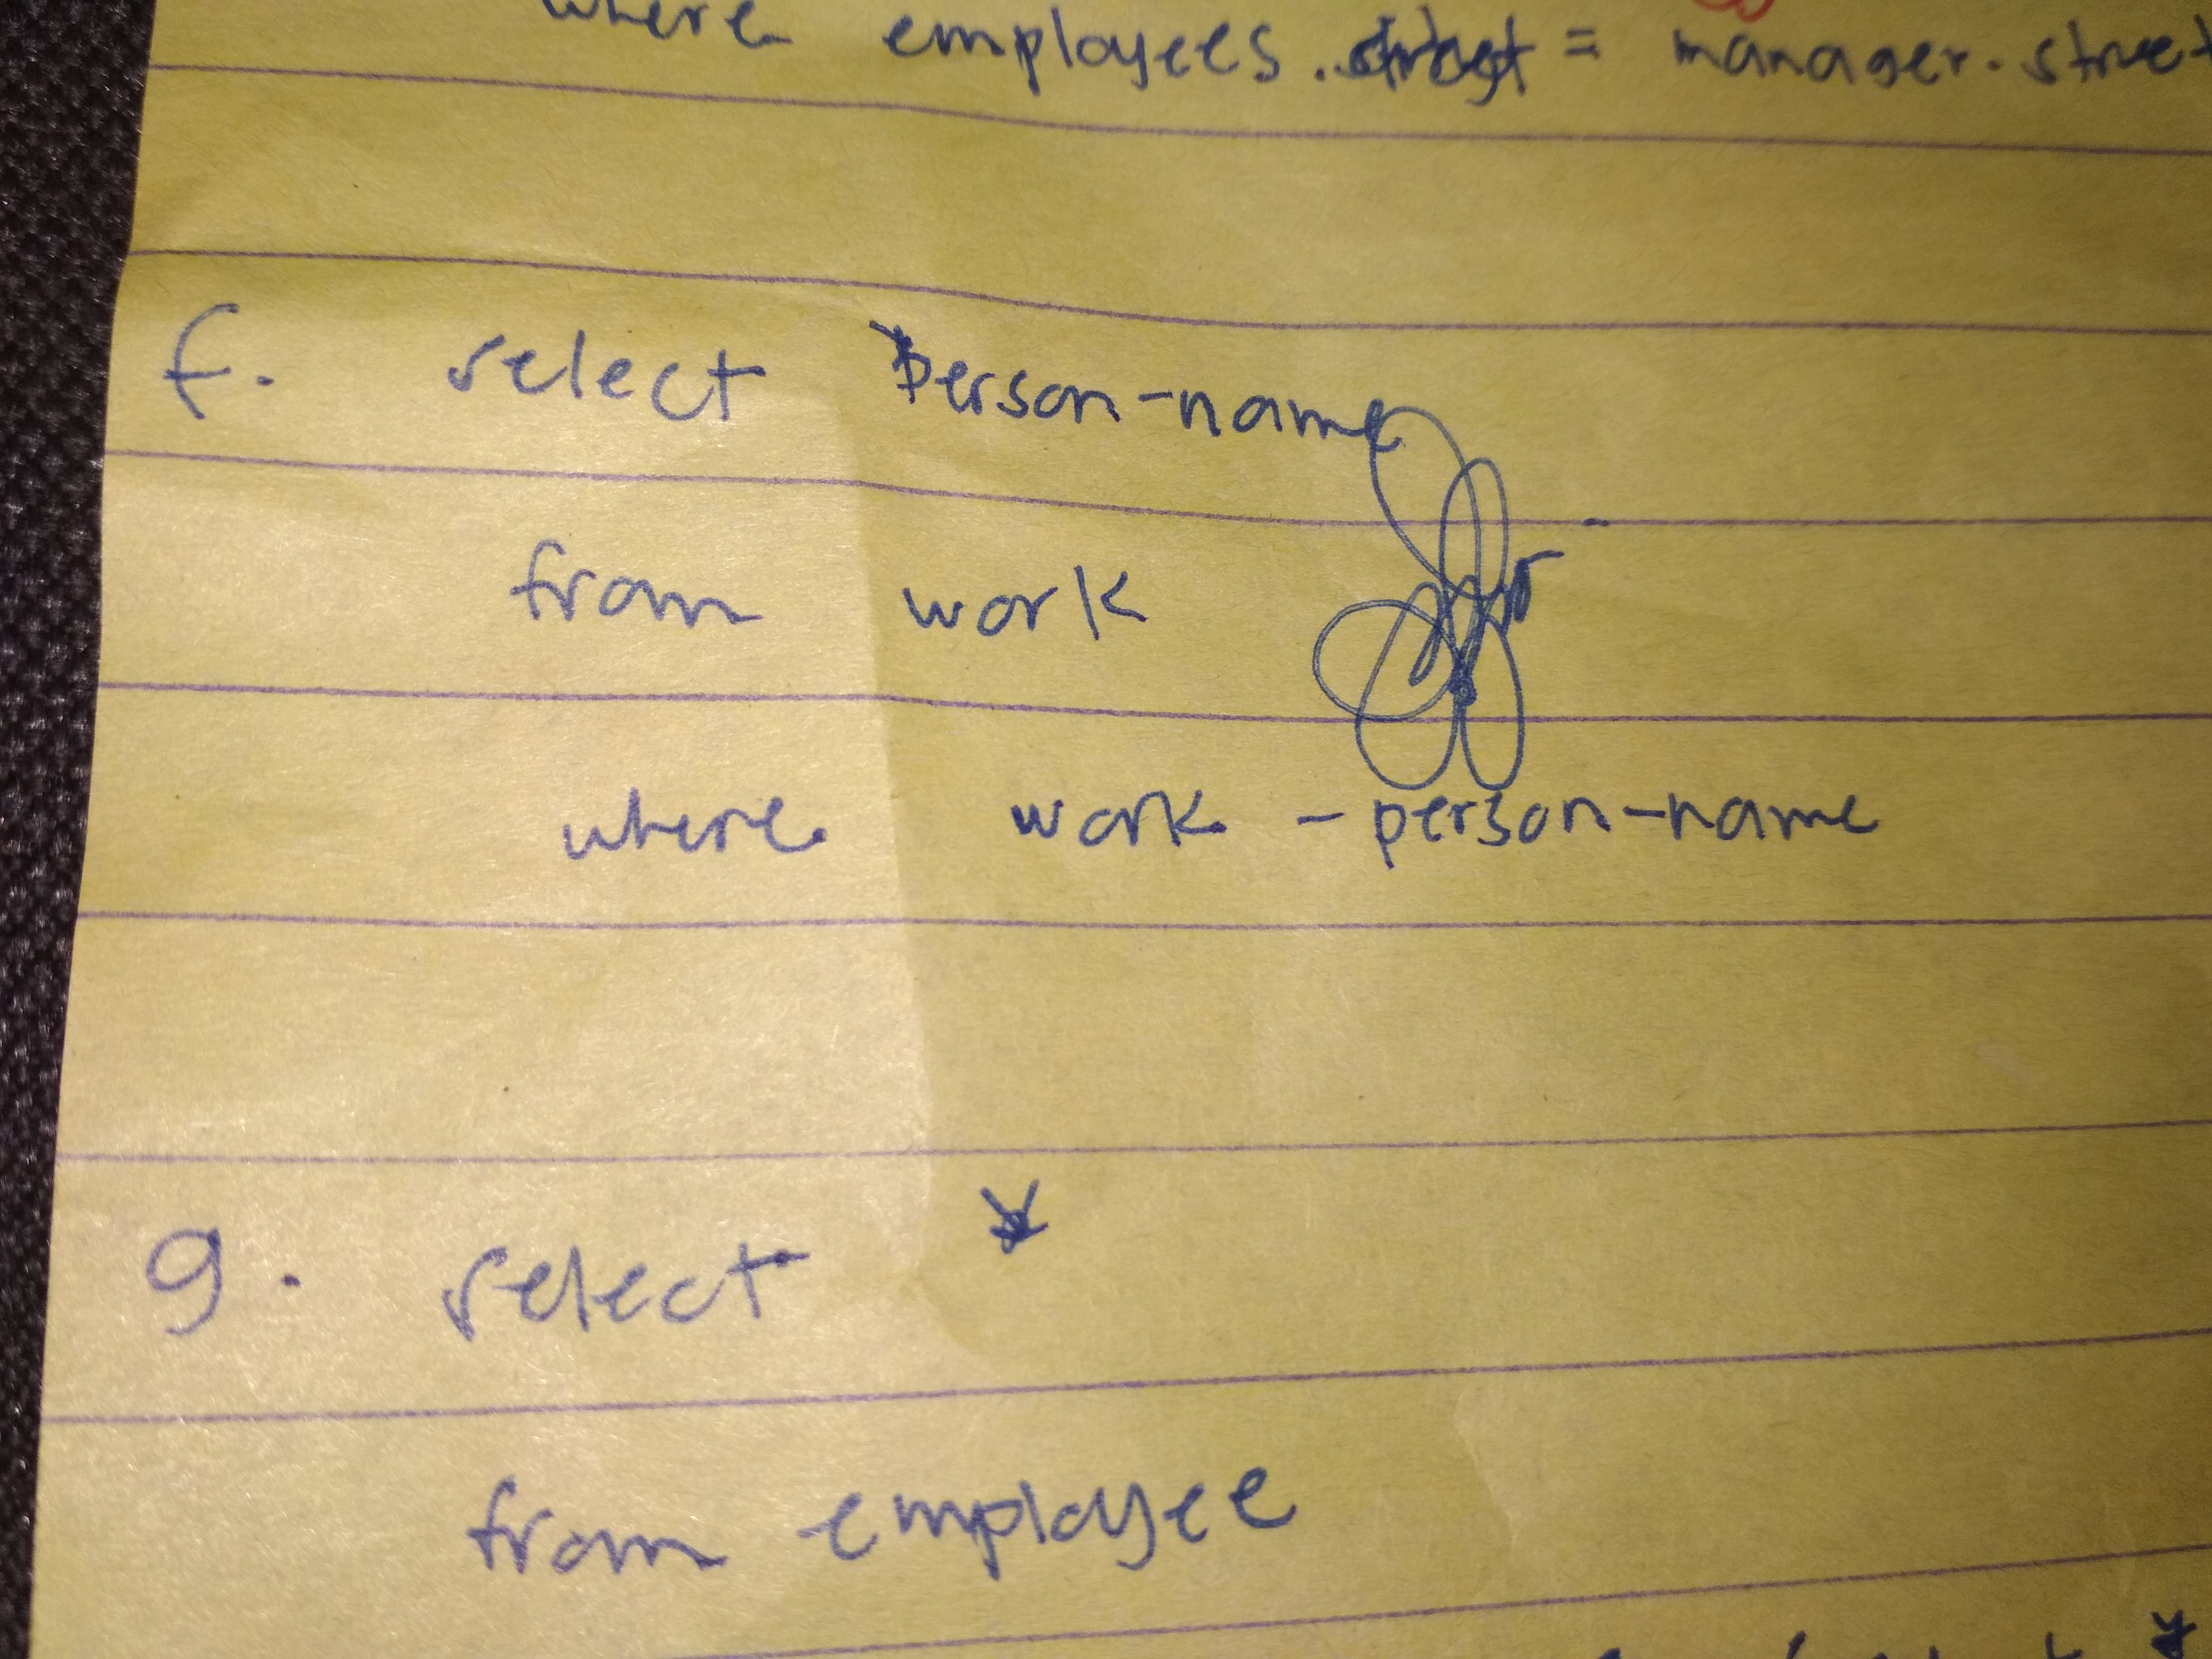 where employees.street = manager.street
f. select person-name
from work
where work - person-name
g. select *
from employee
*